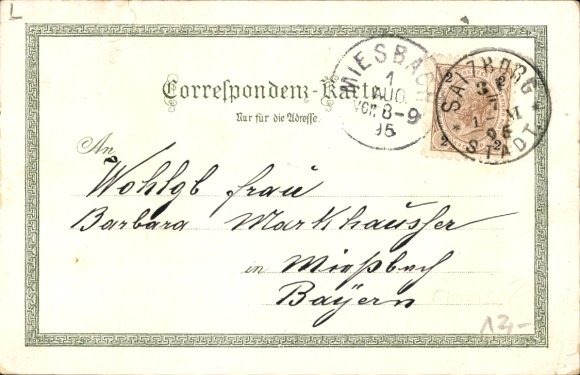 Correspondenz-Karte
Nur für die Adresse.
MIESBACH
1
AUG.
VOR. 8-9
95
SALZBURG
STADT
2
2
2
An
Wohlgb frau
Barbara Markhausser
in Mießbach
Bayern
12,-